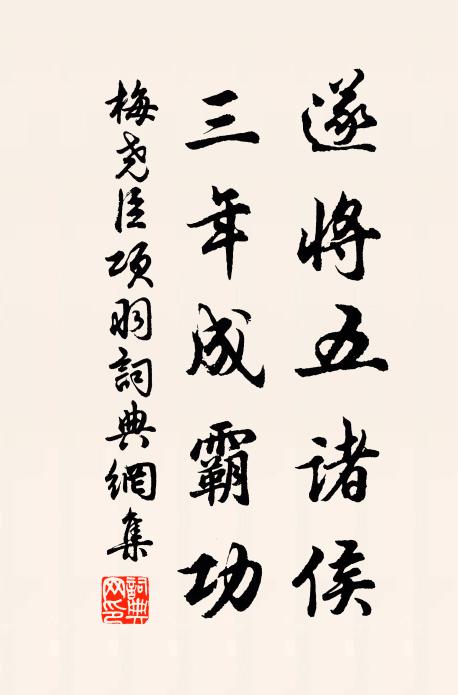 遂将五诸侯
三年成霸功
梅尧臣项羽詞典網集
詞典
网印